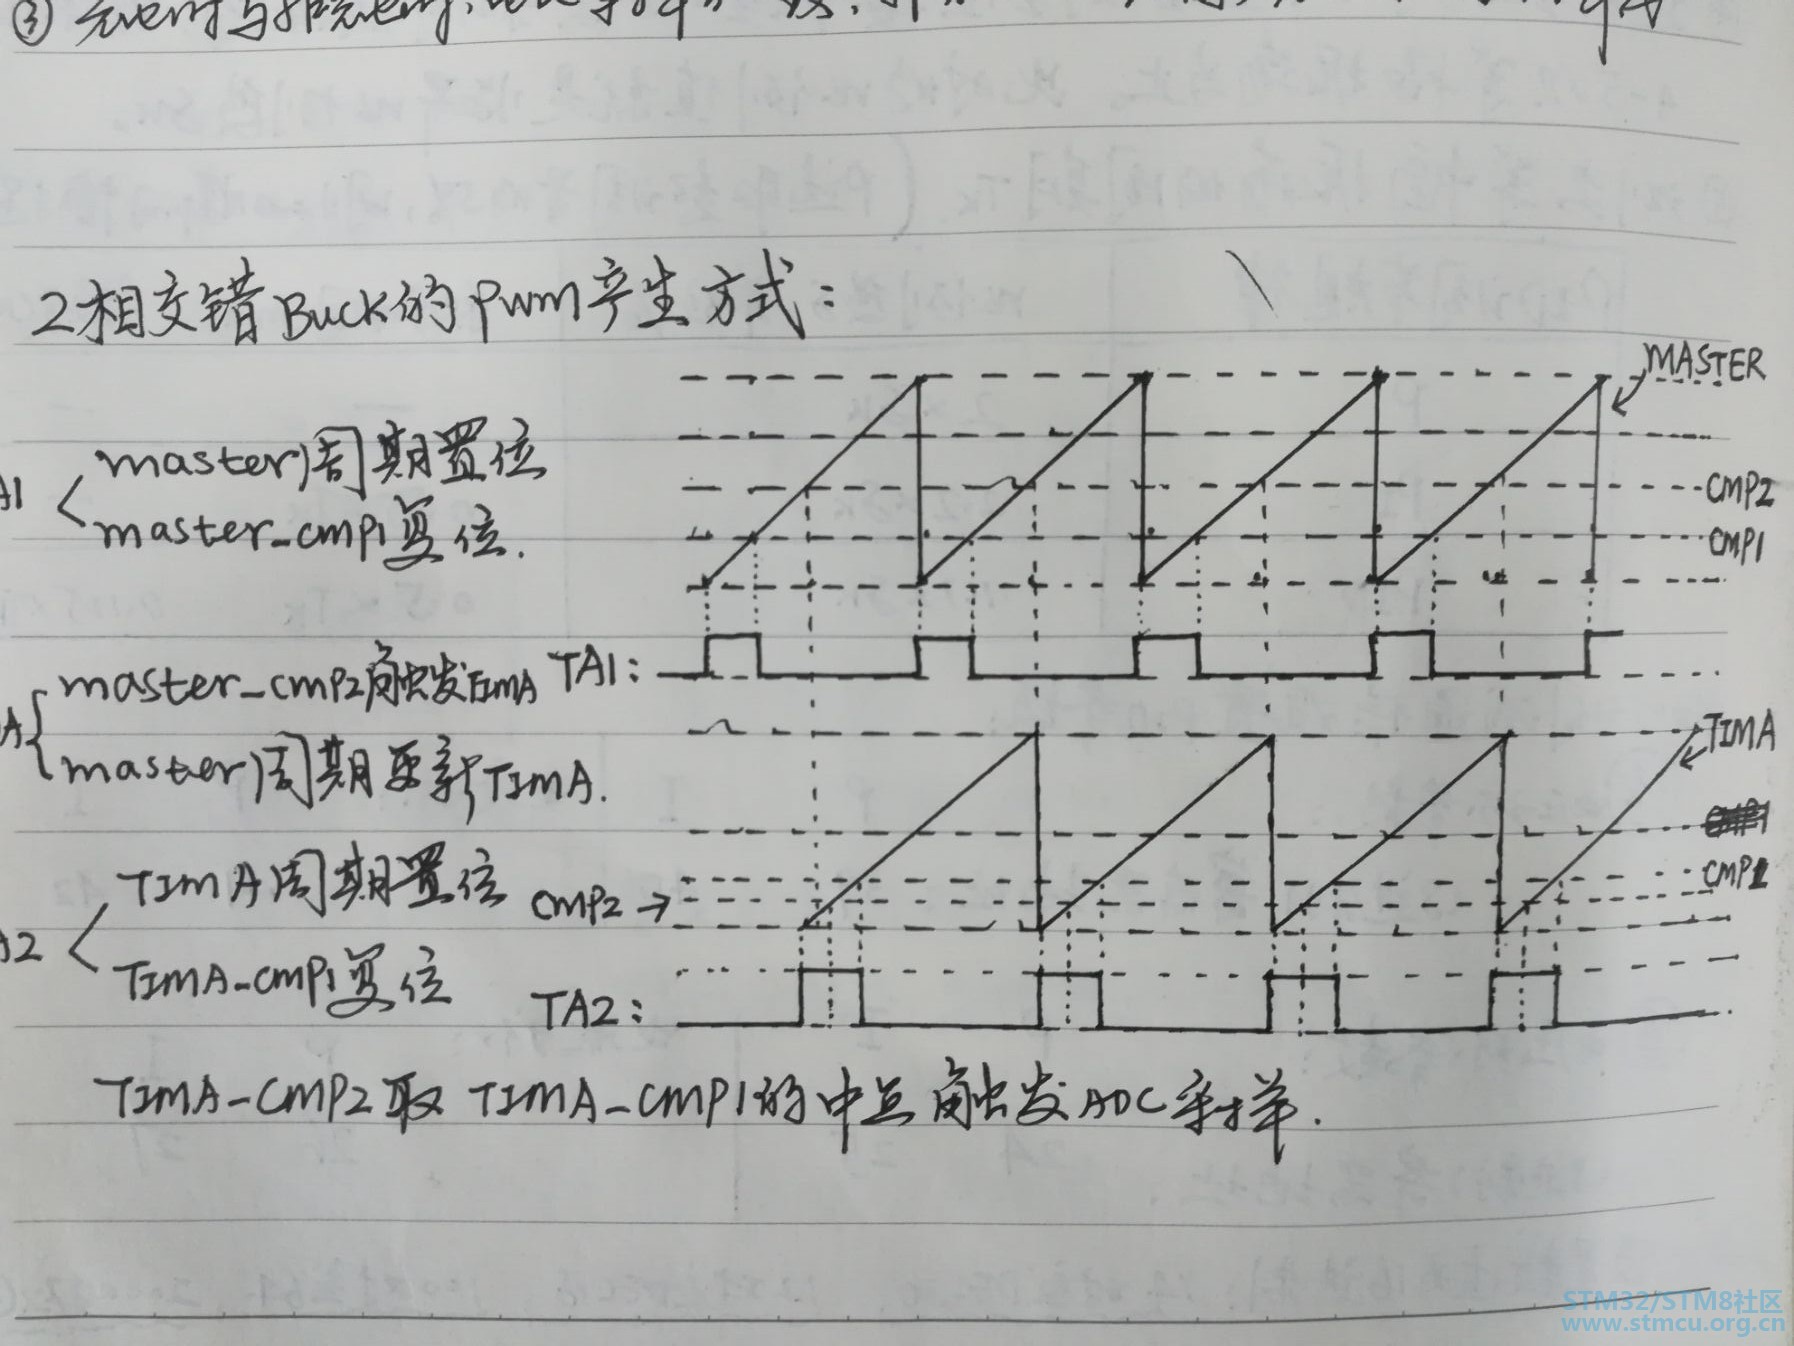 ③
2相交错Buck的pwm产生方式：
MASTER
A1 master周期置位
master_cmp1复位.
CMP2
CMP1
master_cmp2触发TimA
TA1:
A master周期更新TimA.
TIMA
TIMA周期置位
CMP2→
CMP1
A2 TIMA-cmp1复位
TA2:
TIMA-CMP2取 TIMA-CMP1的中点触发ADC采样.
STM32/STM8社区
www.stmcu.org.cn